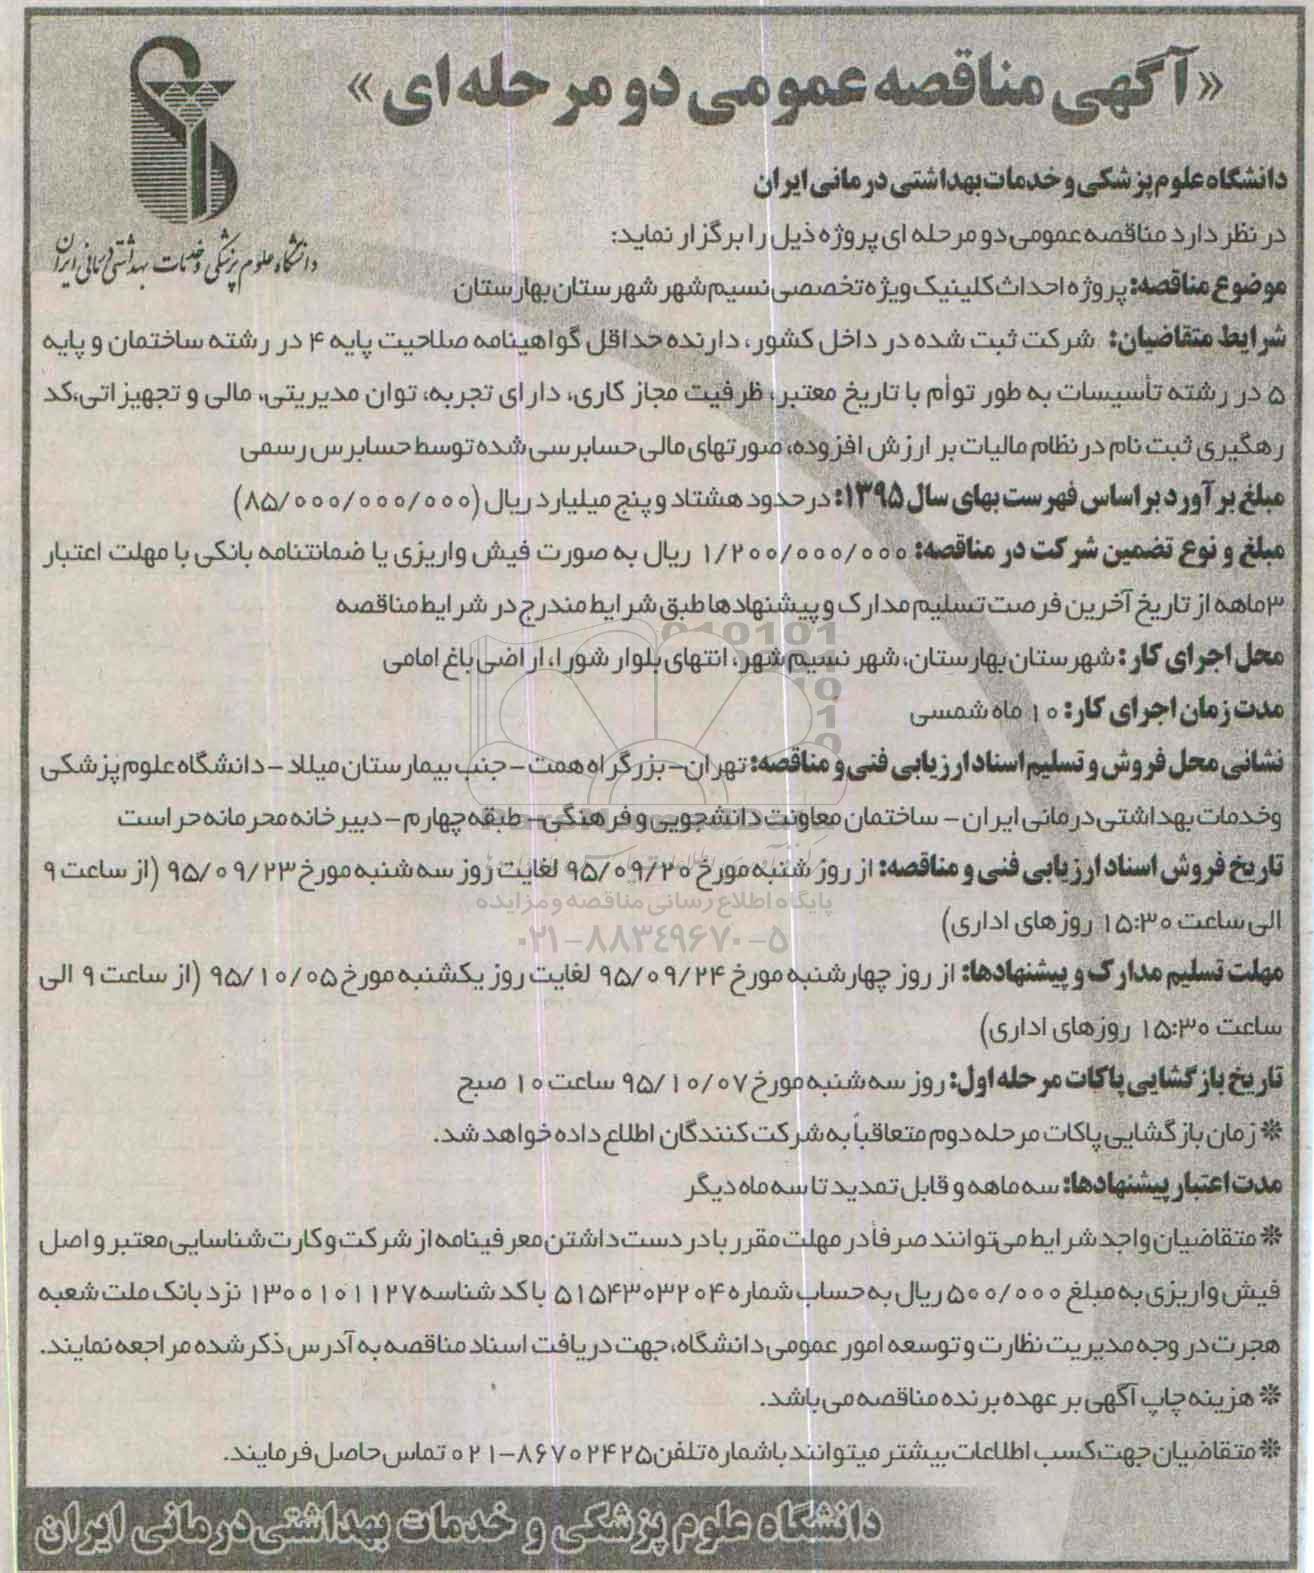 «آگهی مناقصه عمومی دو مرحله ای»
دانشگاه علوم پزشکی و خدمات بهداشتی درمانی ایران
دانشگاه علوم پزشکی و خدمات بهداشتی درمانی ایران
در نظر دارد مناقصه عمومی دو مرحله ای پروژه ذیل را برگزار نماید:
موضوع مناقصه: پروژه احداث کلینیک ویژه تخصصی نسیم شهر شهرستان بهارستان
شرایط متقاضیان: شرکت ثبت شده در داخل کشور، دارنده حداقل گواهینامه صلاحیت پایه ۴ در رشته ساختمان و پایه
۵ در رشته تأسیسات به طور توأم با تاریخ معتبر، ظرفیت مجاز کاری، دارای تجربه، توان مدیریتی، مالی و تجهیزاتی، کد
رهگیری ثبت نام در نظام مالیات بر ارزش افزوده، صورتهای مالی حسابرسی شده توسط حسابرس رسمی
مبلغ برآورد براساس فهرست بهای سال ۱۳۹۵: در حدود هشتاد و پنج میلیارد ریال (۸۵/۰۰۰/۰۰۰/۰۰۰)
مبلغ و نوع تضمین شرکت در مناقصه: ۱/۲۰۰/۰۰۰/۰۰۰ ریال به صورت فیش واریزی یا ضمانتنامه بانکی با مهلت اعتبار
۳ماهه از تاریخ آخرین فرصت تسلیم مدارک و پیشنهادها طبق شرایط مندرج در شرایط مناقصه
محل اجرای کار: شهرستان بهارستان، شهر نسیم شهر، انتهای بلوار شورا، اراضی باغ امامی
مدت زمان اجرای کار: ۱۰ ماه شمسی
نشانی محل فروش و تسلیم اسناد ارزیابی فنی و مناقصه: تهران- بزرگراه همت - جنب بیمارستان میلاد - دانشگاه علوم پزشکی
و خدمات بهداشتی درمانی ایران - ساختمان معاونت دانشجویی و فرهنگی - طبقه چهارم - دبیرخانه محرمانه حراست
تاریخ فروش اسناد ارزیابی فنی و مناقصه: از روز شنبه مورخ ۹۵/۰۹/۲۰ لغایت روز سه شنبه مورخ ۹۵/۰۹/۲۳ (از ساعت ۹
پایگاه اطلاع رسانی مناقصه و مزایده
الی ساعت ۱۵:۳۰ روزهای اداری)
۰۲۱-۸۸۳۴۹۶۷۰-۵
مهلت تسلیم مدارک و پیشنهادها: از روز چهارشنبه مورخ ۹۵/۰۹/۲۴ لغایت روز یکشنبه مورخ ۹۵/۱۰/۰۵ (از ساعت ۹ الی
ساعت ۱۵:۳۰ روزهای اداری)
تاریخ بازگشایی پاکات مرحله اول: روز سه شنبه مورخ ۹۵/۱۰/۰۷ ساعت ۱۰ صبح
❊ زمان بازگشایی پاکات مرحله دوم متعاقباً به شرکت کنندگان اطلاع داده خواهد شد.
مدت اعتبار پیشنهادها: سه ماهه و قابل تمدید تا سه ماه دیگر
❊ متقاضیان واجد شرایط می‌توانند صرفاً در مهلت مقرر با در دست داشتن معرفینامه از شرکت و کارت شناسایی معتبر و اصل
فیش واریزی به مبلغ ۵۰۰/۰۰۰ ریال به حساب شماره ۵۱۵۴۳۰۳۲۰۴ با کد شناسه ۱۳۰۰۱۰۱۱۲۷ نزد بانک ملت شعبه
هجرت در وجه مدیریت نظارت و توسعه امور عمومی دانشگاه، جهت دریافت اسناد مناقصه به آدرس ذکر شده مراجعه نمایند.
❊ هزینه چاپ آگهی بر عهده برنده مناقصه می باشد.
❊ متقاضیان جهت کسب اطلاعات بیشتر میتوانند با شماره تلفن ۸۶۷۰۲۴۲۵-۰۲۱ تماس حاصل فرمایند.
دانشگاه علوم پزشکی و خدمات بهداشتی درمانی ایران